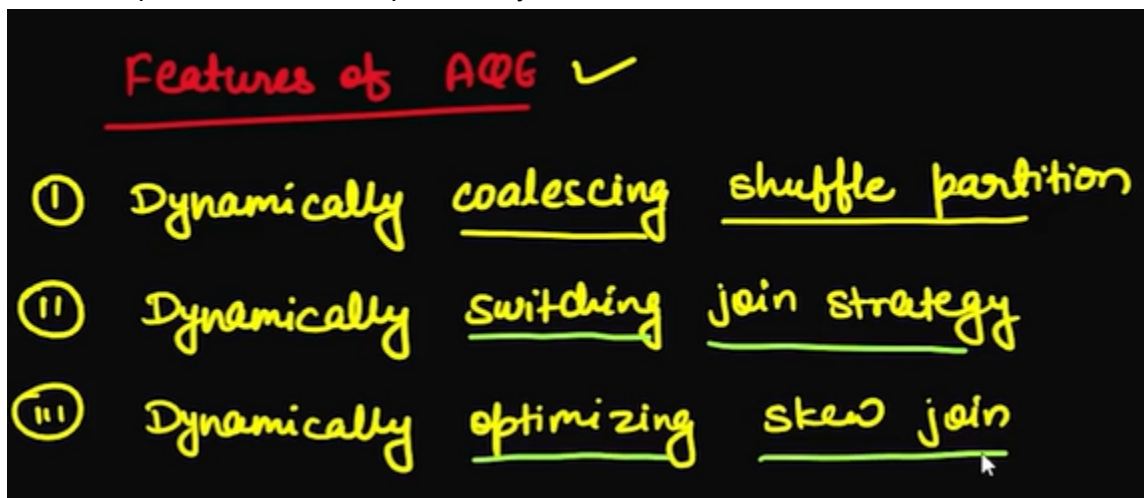 Features of AQE ✓
① Dynamically coalescing shuffle partition
⑪ Dynamically switching join strategy
ⅲ Dynamically optimizing skew join